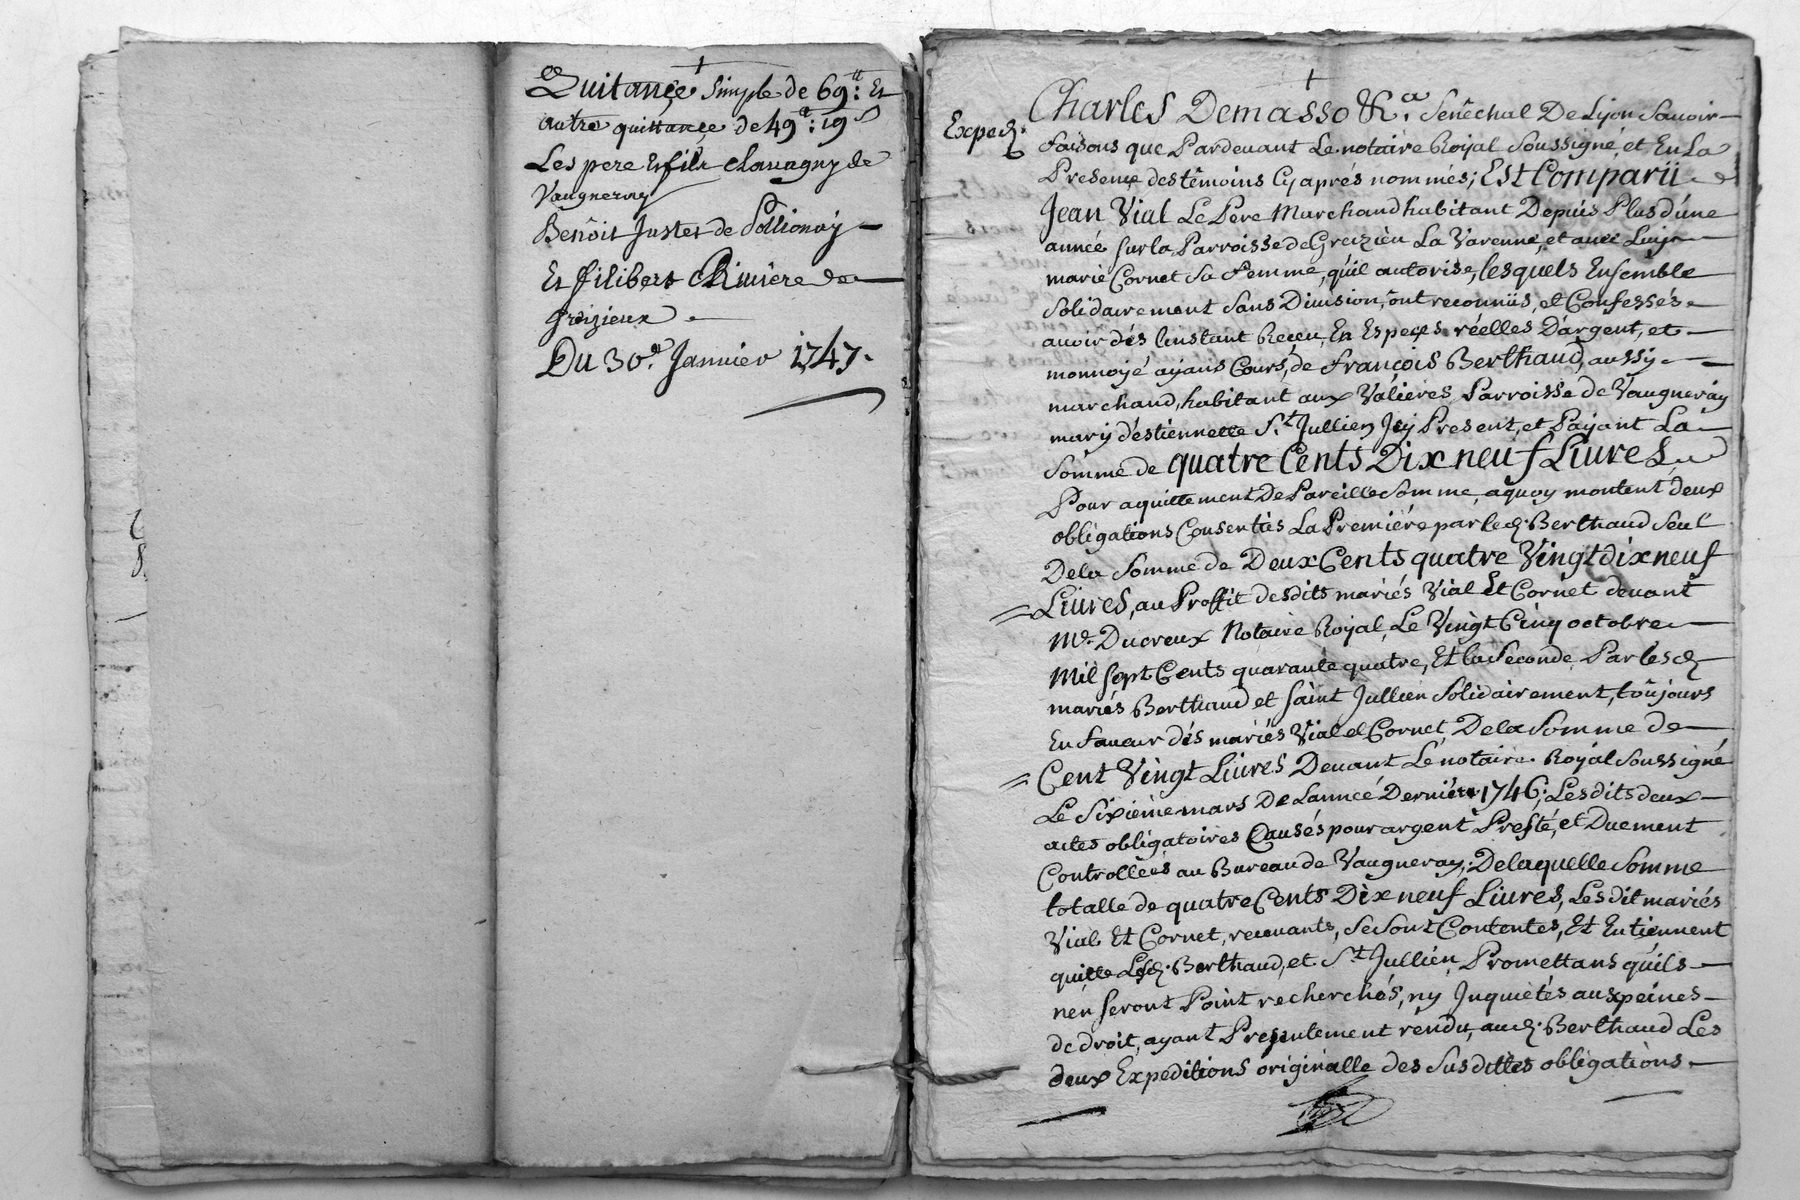 Quitance Simple de 69ʰ: Et
autre quittance de 49ʰ: 19ˢ
Les pere et fils Chavagny de
Vaugneray
Benoit Juster de Pollionay
Et filibert Riviere de
Greizieux
Du 30.ᵉ Janvier 1747.
Exped:
Charles Demasso &c.ᵃ Senêchal De Lyon Savoir
faisons que Pardevant Le notaire Royal Soussigné, et En La
Presence des têmoins Cy aprés nommés; Est Comparü
Jean Vial Le Pere Marchand habitant Depuis Plus d'une
année sur la Parroisse de Greizieu La Varenne, et avec Luy
marie Cornet Sa Femme, qu'il autorise, lesquels Ensemble
Solidairement Sans Division, ônt reconnüs, et Confessés
avoir dés linstant Reçeu, En Espeçes réelles D'argent, et
monnoyé ayans Cours, de françois Berthaud, aussy
marchand, habitant aux Valieres Parroisse de Vaugneray
mary d'éstiennette S.ᵗ Jullien Jcy Present, et Payant La
Somme de quatre Cents Dix neuf Livres
Pour aquittement De Pareille Somme, a quoy montent deux
obligations Consenties La Premiére par led. Berthaud Seul
De la Somme de Deux Cents quatre Vingt dix neuf
Livres, au Proffit desdits mariés Vial Et Cornet devant
Mᵉ. Ducreux Notaire Royal, Le Vingt Cinq octobre
Mil Sept Cents quarante quatre, Et la Seconde Par lesd.
mariés Berthaud et Saint Jullien Solidairement, toûjours
En faveur dés mariés Vial et Cornet De la Somme de
Cent Vingt Livres Devant Le notaire Royal Soussigné
Le Sixiême mars De Lannée Derniére 1746; Les dits deux
actes obligatoires Causés pour argent Presté, et Duement
Controllées au Bureau de Vaugneray; De laquelle Somme
totalle de quatre Cents Dix neuf Livres, Les dit mariés
Vial Et Cornet, recevants, Se sont Contentes, Et En tiennent
quitte Lesd. Berthaud, et S.ᵗ Jullien, Promettans qu'ils
nén seront Point recherchés, ny Jnquiétés aux peines
de droit, ayant Presentement réndu, aud. Berthaud Les
deux Expeditions originalle des Susdittes obligations